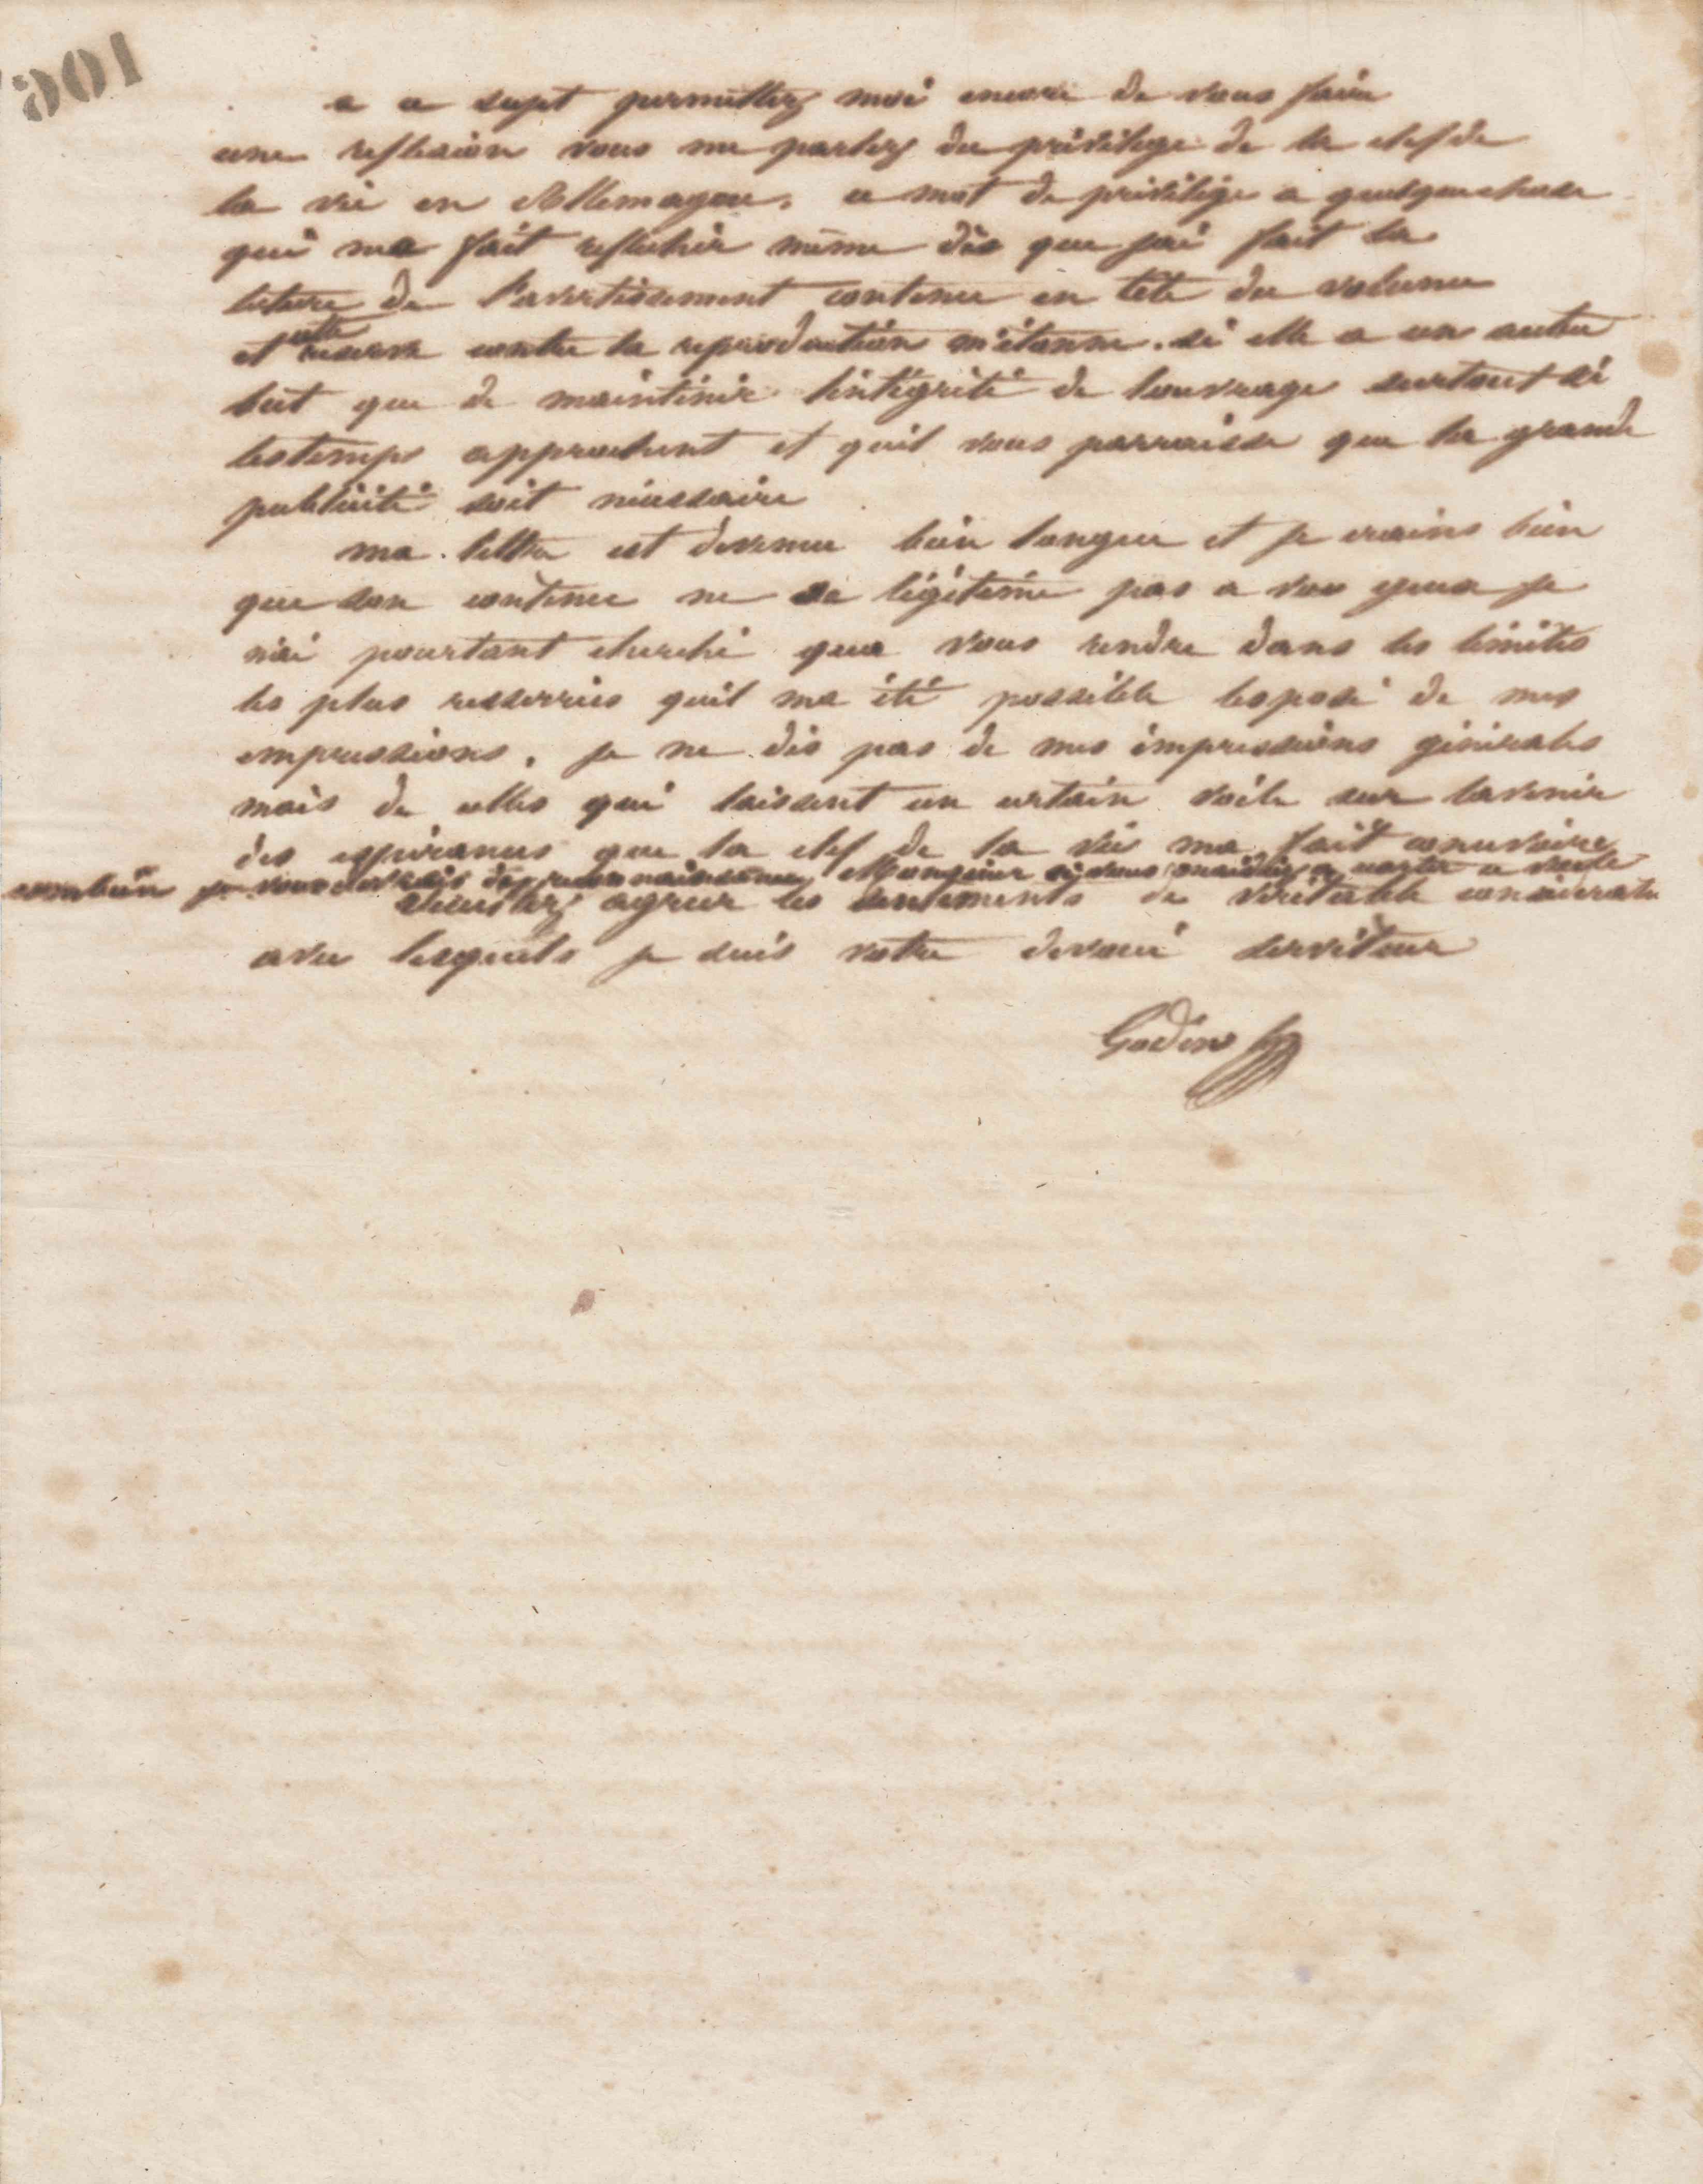 106
a ce sujet permettez moi encore de vous faire
une reflexion vous me parlez du privilege de la clef de
la vie en Allemagne, ce mot de privilège a quelque chose
qui ma fait reflechir même dès que jai fait la
lecture de l'avertissement contenu en tête du volume
et cette reserve contre la reproduction m'étonne. si elle a un autre
but que de maintenir lintégrité de louvrage surtout si
les temps approchent et quil vous parraisse que la grande
publicité soit nécessaire
ma lettre est devenue bien longue et je crains bien
que son contenu ne se légitime pas a vos yeux je
nai pourtant cherché qua vous rendre dans les limites
les plus resserrées quil ma été possible lexposé de mes
impressions, je ne dis pas de mes impressions générales
mais de celles qui laissent un certain voile sur lavenir
des espérances que la clef de la vie ma fait concevoire
combien je vous devrais de reconnaissance Monsieur si vous maidiez a
veuillez agreer les sentiments de véritable considération
avec lesquels je suis votre dévoué serviteur
Godin